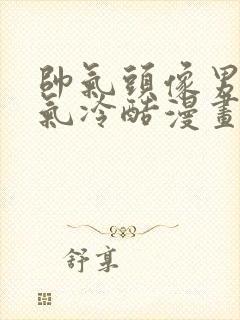 帥氣頭像男
氣冷酷漫畫
舒享